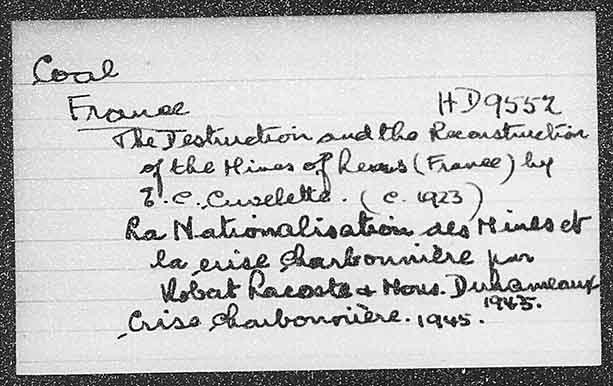 Coal
France HD9552
The Destruction and the Reconstruction
of the Mines of Lens (France) by
E.C. Cuvelette. (c. 1923)
La Nationalisation des Mines et
la crise Charbonnière par
Robert Lacoste & Mons. Duhameaux
1945.
Crise Charbonnière. 1945.